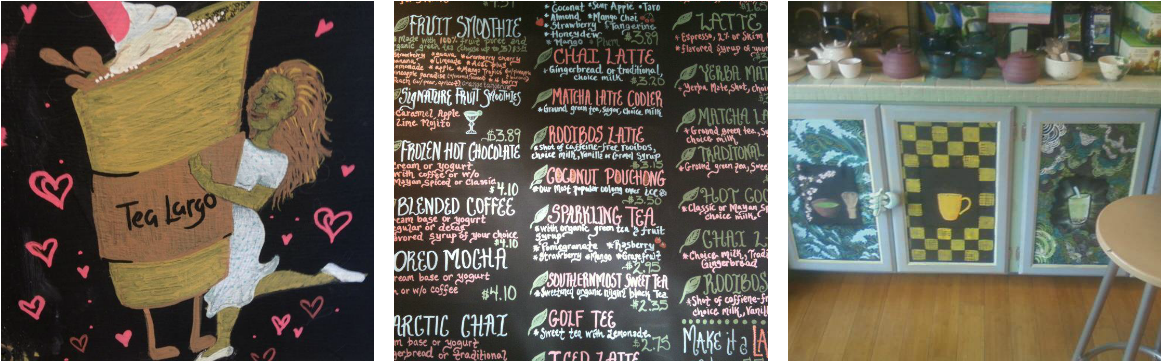 Tea Largo
FRUIT SMOOTHIE
Made with 100% fruit puree and
SIGNATURE FRUIT SMOOTHIES
Caramel Apple
Lime Mojito
$3.89
FROZEN HOT CHOCOLATE
ream or yogurt
with coffee or w/o
Mayan, Spiced or Classic
$4.10
BLENDED COFFEE
eam base or yogurt
gular or decaf
vored syrup of your choice
$4.10
ORED MOCHA
ream base or yogurt
or w/o coffee
$4.10
ARCTIC CHAI
m base or yogurt
gerbread or traditional
Coconut Sour Apple Taro
Almond Mango Chai
Strawberry Tangerine
Honeydew
Mango Plum $3.89
CHAI LATTE
Gingerbread or traditional,
choice milk
$3.20
MATCHA LATTE COOLER
Ground green tea, Sugar, choice milk
ROOIBOS LATTE
shot of caffeine-free rooibos,
choice milk, Vanilla or Syrup
$3.15
COCONUT POUCHONG
Our Most popular oolong over ice
$3.50
SPARKLING TEA
with organic green tea & fruit
syrup
Pomegranate Raspberry
Strawberry Mango Grapefruit
$2.95
SOUTHERNMOST SWEET TEA
Sweetened organic nilgiri black Tea
$2.35
GOLF TEE
Sweet tea with Lemonade
$2.75
ICED LATTE
LATTE
Espresso, 2% or Skim
flavored syrup of your
YERBA MAT
Yerba Mate shot, choi
MATCHA L
Ground green tea, Su
choice milk
TRADITIONAL
Ground green tea, Swee
HOT COC
Classic or Mayan Sp
choice milk
CHAI L
Choice milk, Tradi
Gingerbread
ROOIBOS
Shot of caffeine-fr
choice milk, Vanil
MAKE it a LA